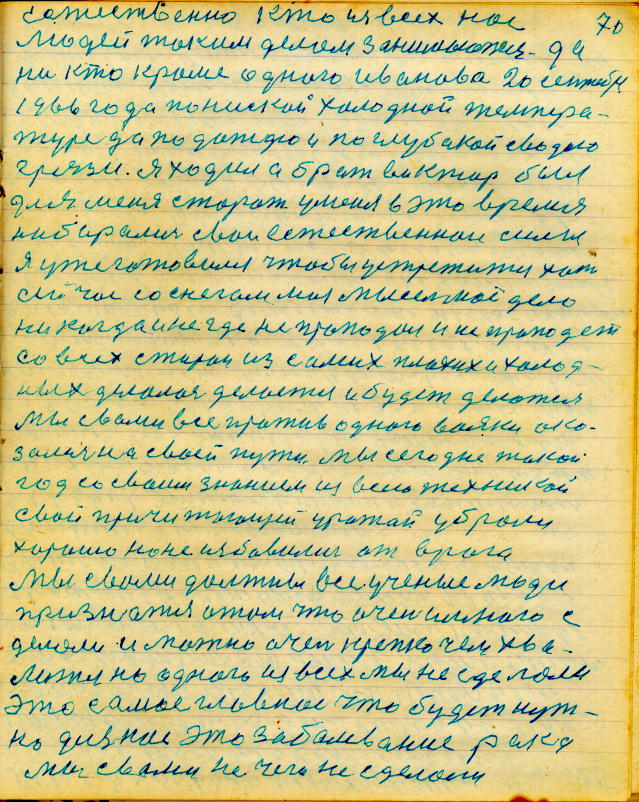 70
сстественно Кто из всех нас
людей таким делом занимаются да
ни кто кроме одного иванова 20 сентября
1966 года пониской холодной темпера-
туре да по дождю и поглубакой сводою
грязи. Я ходил а брат виктор был
для меня сторож уменя вэто время
набирались сваи естественнаи силы
я уже готовился чтобы устретится хат
сийчас соснегом моя мысеиной дело
никогда и не где не пропадал и не пропадет
совсех старон из самих плохих и холод-
ных делалас делается и будет делатся
мы свами все против одного вояки ока-
зались на своей пути. мы сегодне такой
год со своим знанием из всею техникой
свой причитающей урожай убрали
хорошо но не избавились от врага
мы свами должны все ученые люди
признатся отом что очен много с
делали и можно очен крепко чем хва-
лится но одного из всех мы не сделали
Это самое главное что будет нуж-
но для нас это забалевание рака
мы свами не чего не сделали